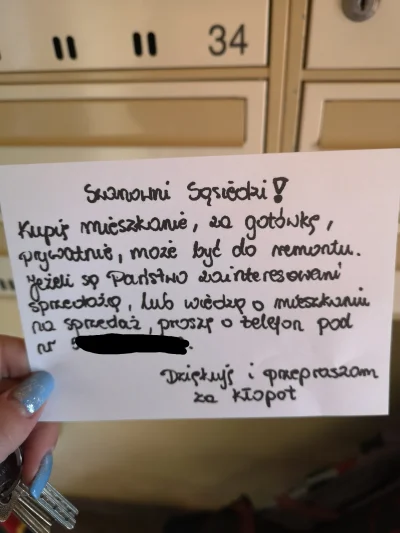 34
Szanowni Sąsiedzi!
Kupię mieszkanie, za gotówkę,
prywatnie, może być do remontu.
Jeżeli są Państwo zainteresowani
sprzedażą, lub wiedzą o mieszkaniu
na sprzedaż, proszę o telefon pod
nr
Dziękuję i przepraszam
za kłopot